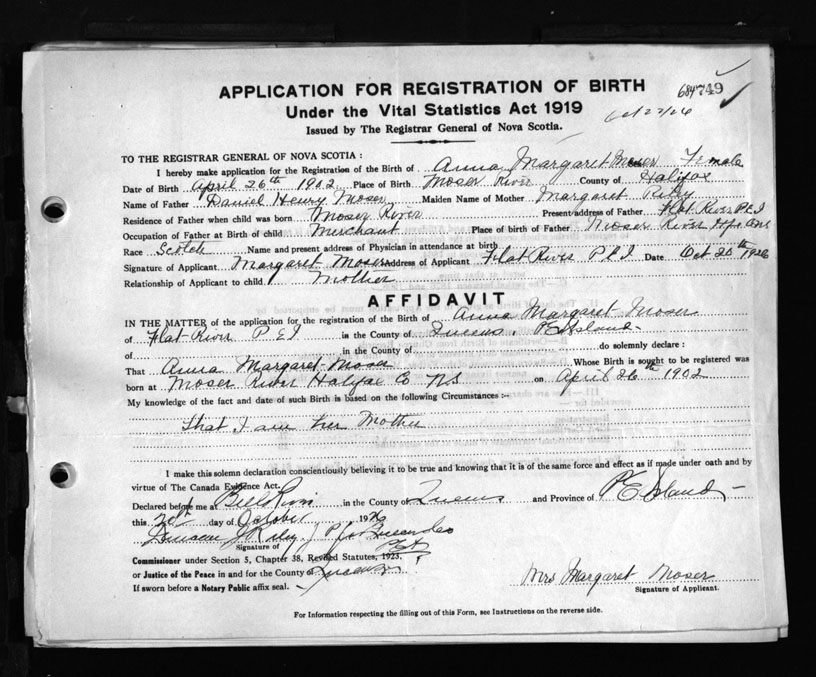 APPLICATION FOR REGISTRATION OF BIRTH
749
Under the Vital Statistics Act 1919
Oct 27/26
Issued by The Registrar General of Nova Scotia.
TO THE REGISTRAR GENERAL OF NOVA SCOTIA :
I hereby make application for the Registration of the Birth of Anna Margaret Moser Female
Date of Birth April 26th 1902 Place of Birth Moser River County of Halifax
Name of Father Daniel Henry Moser Maiden Name of Mother Margaret Riley
Residence of Father when child was born Moser River Present address of Father Flat River P.E.I
Occupation of Father at Birth of child Merchant Place of birth of Father Moser River Hfx
Race Scotch Name and present address of Physician in attendance at birth
Signature of Applicant Margaret Moser Address of Applicant Flat River P E I Date Oct 20th 1926
Relationship of Applicant to child Mother
AFFIDAVIT
IN THE MATTER of the application for the registration of the Birth of Anna Margaret Moser
of Flat River P E I in the County of Queens. P.E. Island
of in the County of do solemnly declare :
That Anna Margaret Moser Whose Birth is sought to be registered was
born at Moser River Halifax Co N.S on April 26th 1902
My knowledge of the fact and date of such Birth is based on the following Circumstances :-
that I am her Mother
I make this solemn declaration conscientiously believing it to be true and knowing that it is of the same force and effect as if made under oath and by
virtue of The Canada Evidence Act.
Declared before me at in the County of Queens and Province of P E Island
this day of October 1926
Signature of
Commissioner under Section 5, Chapter 38, Revised Statutes, 1923.
or Justice of the Peace in and for the County of Queens
If sworn before a Notary Public affix seal.
Mrs Margaret Moser
Signature of Applicant.
For Information respecting the filling out of this Form, see Instructions on the reverse side.